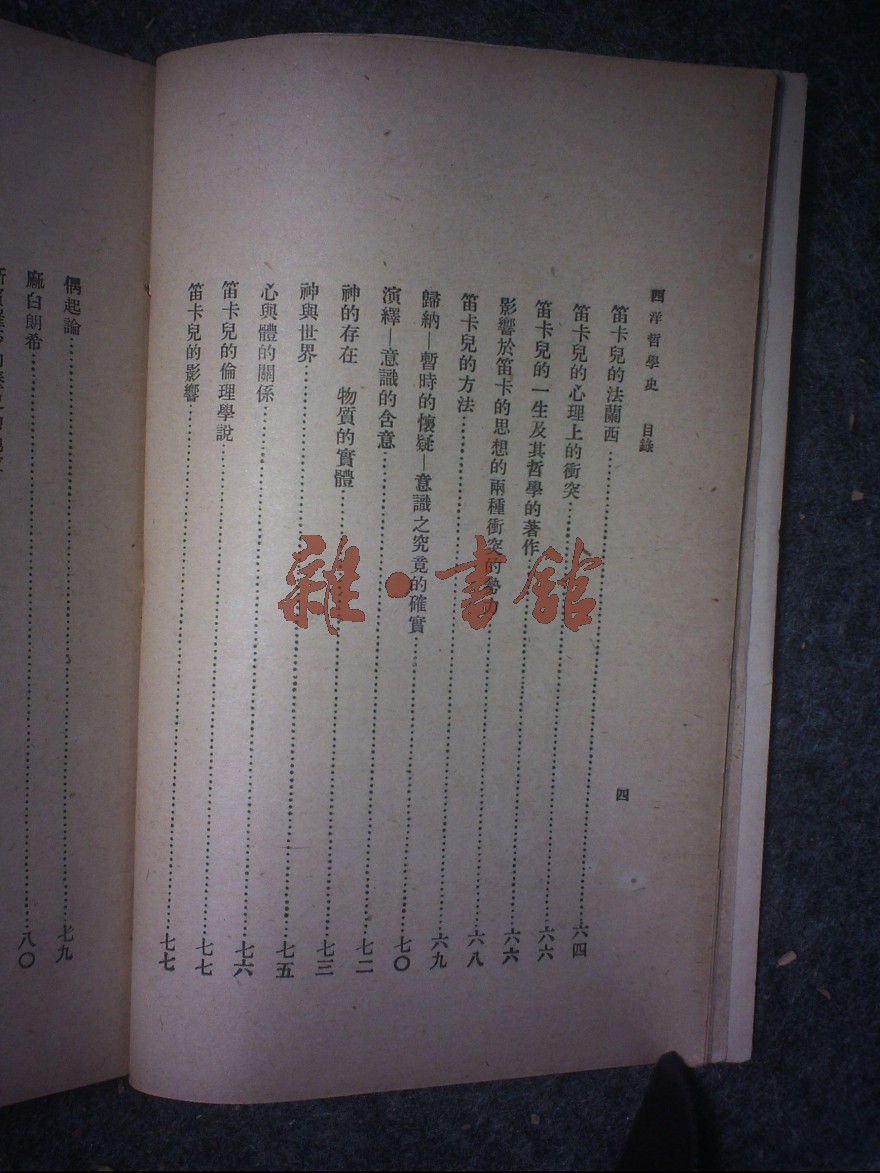 西洋哲學史　目錄
四
笛卡兒的法蘭西……六四
笛卡兒的心理上的衝突……六六
笛卡兒的一生及其哲學的著作……六六
影響於笛卡的思想的兩種衝突的勢力……六八
笛卡兒的方法……六九
歸納—暫時的懷疑—意識之究竟的確實……七〇
演釋—意識的含意……七二
神的存在　物質的實體……七三
神與世界……七五
心與體的關係……七六
笛卡兒的倫理學說……七七
笛卡兒的影響……七七
偶起論……七九
麻白朗希……八〇
雜·書館